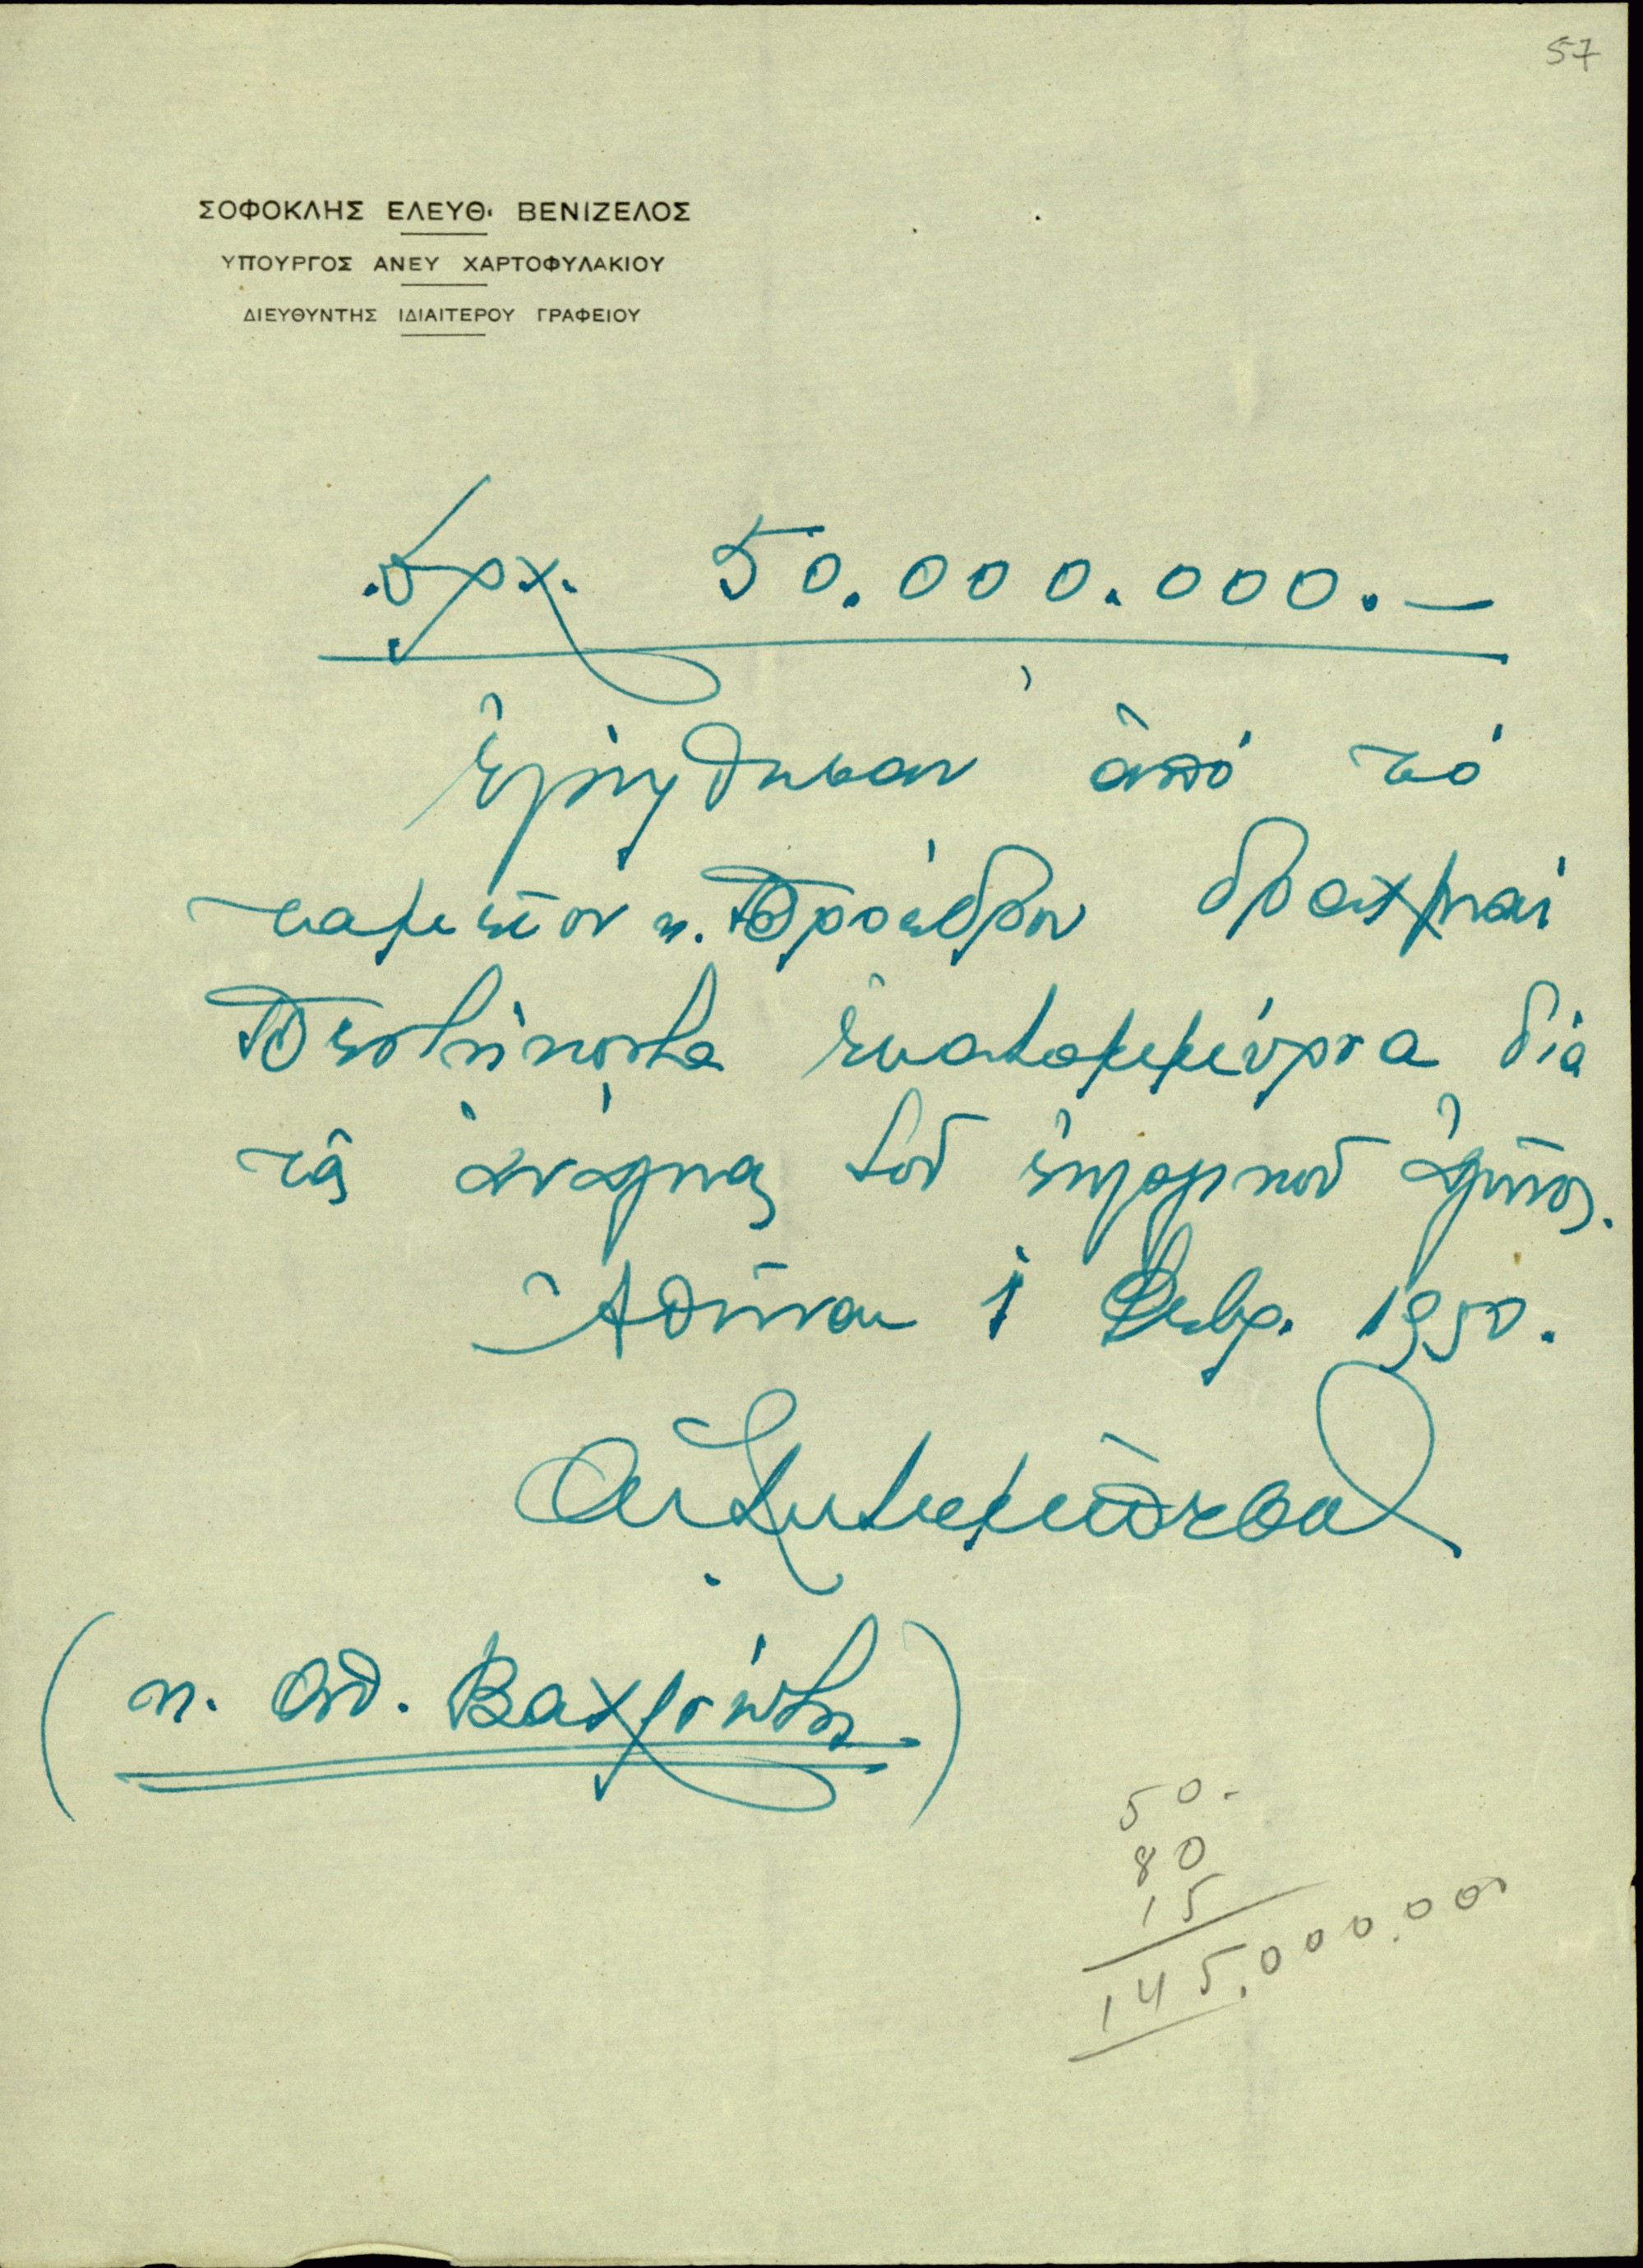 57
ΣΟΦΟΚΛΗΣ ΕΛΕΥΘ. ΒΕΝΙΖΕΛΟΣ
ΥΠΟΥΡΓΟΣ ΑΝΕΥ ΧΑΡΤΟΦΥΛΑΚΙΟΥ
ΔΙΕΥΘΥΝΤΗΣ ΙΔΙΑΙΤΕΡΟΥ ΓΡΑΦΕΙΟΥ
δρχ. 50.000.000.—
ἐλήφθησαν ἀπό τό
ταμεῖον κ. Προέδρου δραχμαί
Πεντήκοντα ἑκατομμύρια διά
τάς ἀνάγκας τοῦ ἐκλογικοῦ ἀγῶνος.
Ἀθῆναι 1 Φεβρ. 1950.
(κ. Αθ. Βαχλιώτης)
50.-
80
15
145.000.000